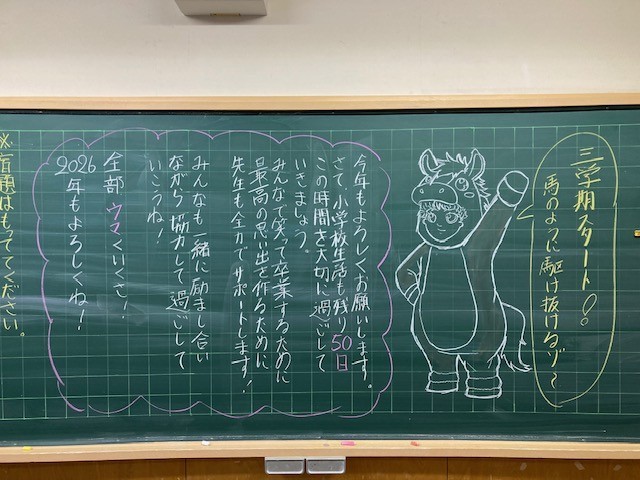 三学期スタート!
馬のように駆け抜けるゾ〜
今年もよろしくお願いします。
さて、小学校生活も残り50日
この時間を大切に過ごして
いきましょう。
みんなで笑って卒業するために
最高の思い出を作るために
先生も全力でサポートします!
みんなも一緒に励まし合い
ながら協力して過ごして
いこうね!
全部ウマくいくさ!
2026年もよろしくね!
※宿題はもっててください。